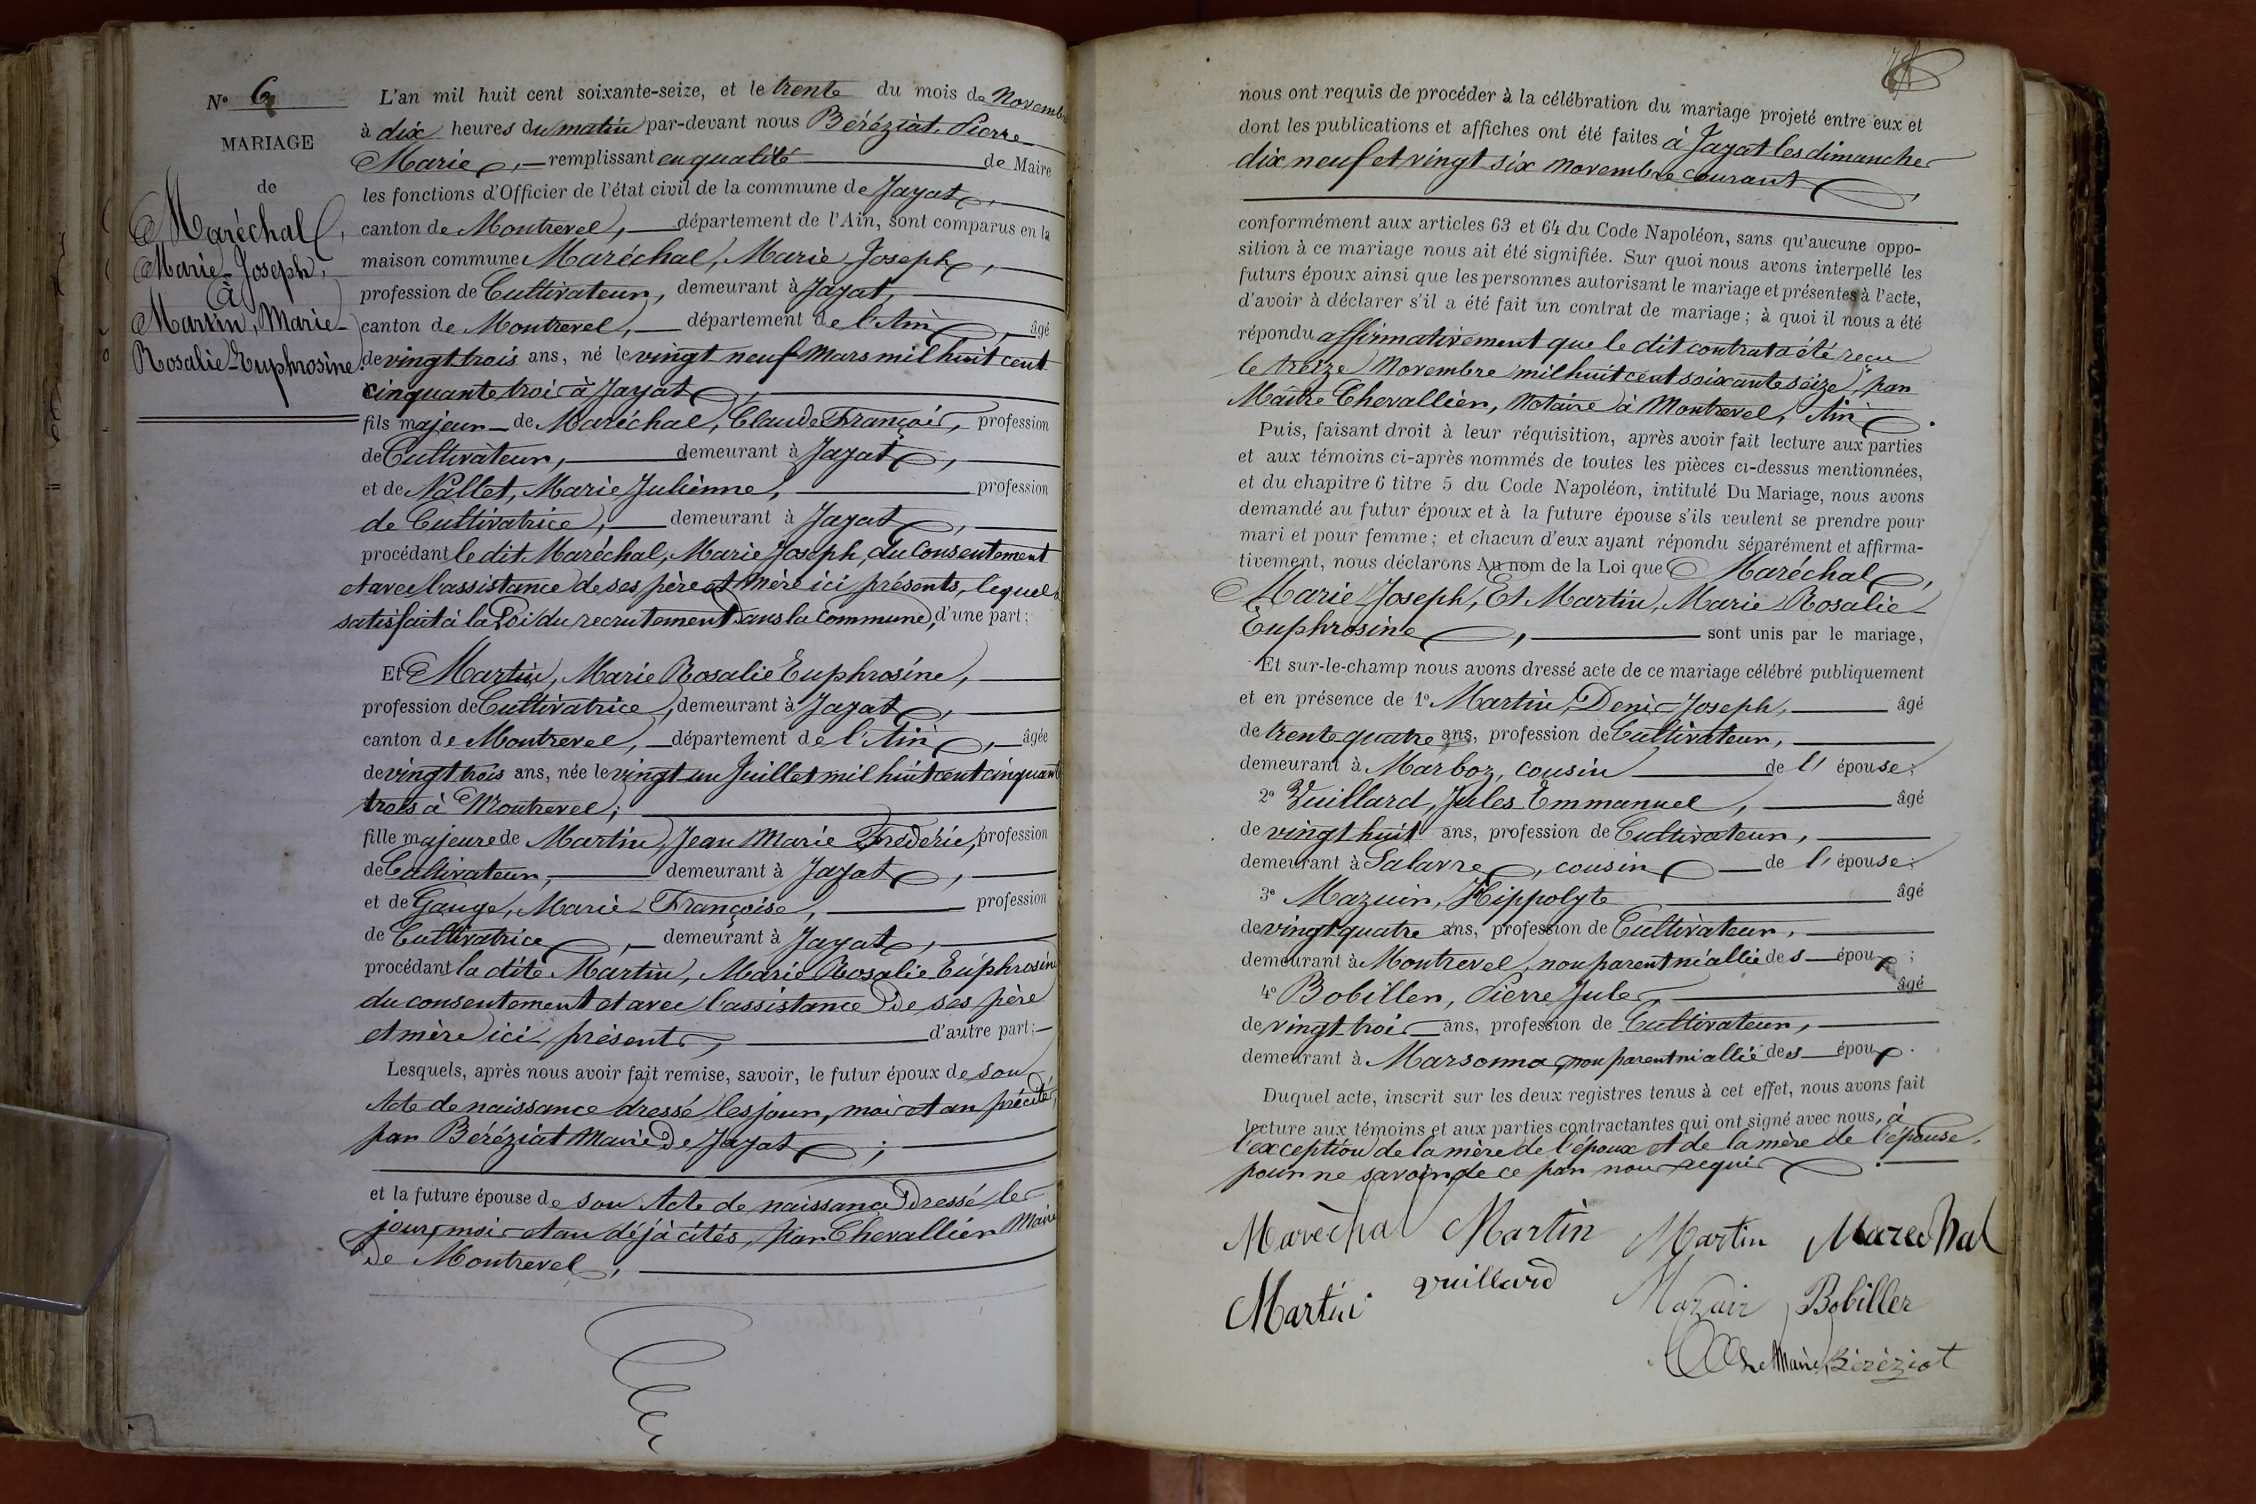 N° 6
MARIAGE
de
Maréchal,
Marie-Joseph,
à
Martin, Marie-
Rosalie-Euphrosine.
L'an mil huit cent soixante-seize, et le trente du mois de Novembre
à dix heures du matin par-devant nous Béréziat Pierre
Marie, remplissant en qualité de Maire
les fonctions d'Officier de l'état civil de la commune de Jayat,
canton de Montrevel, département de l'Ain, sont comparus en la
maison commune Maréchal, Marie Joseph,
profession de Cultivateur, demeurant à Jayat,
canton de Montrevel, département de l'Ain, âgé
de vingt trois ans, né le vingt neuf Mars mil huit cent
cinquante trois à Jayat,
fils majeur de Maréchal, Claude François, profession
de Cultivateur, demeurant à Jayat,
et de Pallet, Marie Julienne, profession
de Cultivatrice, demeurant à Jayat,
procédant le dit Maréchal, Marie Joseph, du Consentement
et avec l'assistance de ses père et mère ici présents, lequel a
satisfait à la Loi du recrutement dans la commune, d'une part;
Et Martin, Marie Rosalie Euphrosine,
profession de Cultivatrice, demeurant à Jayat,
canton de Montrevel, département de l'Ain, âgée
de vingt trois ans, née le vingt un Juillet mil huit cent cinquante
trois à Montrevel;
fille majeure de Martin, Jean Marie Frédéric, profession
de Cultivateur, demeurant à Jayat,
et de Gauge, Marie Françoise, profession
de Cultivatrice, demeurant à Jayat,
procédant la dite Martin, Marie Rosalie Euphrosine
du consentement et avec l'assistance de ses père
et mère ici présents, d'autre part;
Lesquels, après nous avoir fait remise, savoir, le futur époux de son
Acte de naissance dressé les jour, mois et an précités,
par Béréziat Maire de Jayat;
et la future épouse de son Acte de naissance dressé les
jour, mois et an déjà cités, par Chevallier Maire
de Montrevel,
nous ont requis de procéder à la célébration du mariage projeté entre eux et
dont les publications et affiches ont été faites à Jayat les dimanches
dix neuf et vingt six novembre courant,
conformément aux articles 63 et 64 du Code Napoléon, sans qu'aucune oppo-
sition à ce mariage nous ait été signifiée. Sur quoi nous avons interpellé les
futurs époux ainsi que les personnes autorisant le mariage et présentes à l'acte,
d'avoir à déclarer s'il a été fait un contrat de mariage; à quoi il nous a été
répondu affirmativement que le dit contrat a été reçu
le treize Novembre mil huit cent soixante seize, par
Maître Chevallier, Notaire à Montrevel, Ain.
Puis, faisant droit à leur réquisition, après avoir fait lecture aux parties
et aux témoins ci-après nommés de toutes les pièces ci-dessus mentionnées,
et du chapitre 6 titre 5 du Code Napoléon, intitulé Du Mariage, nous avons
demandé au futur époux et à la future épouse s'ils veulent se prendre pour
mari et pour femme; et chacun d'eux ayant répondu séparément et affirma-
tivement, nous déclarons Au nom de la Loi que Maréchal,
Marie Joseph, Et Martin, Marie Rosalie
Euphrosine, sont unis par le mariage,
Et sur-le-champ nous avons dressé acte de ce mariage célébré publiquement
et en présence de 1° Martin, Denis Joseph, âgé
de trente quatre ans, profession de Cultivateur,
demeurant à Marboz, cousin de l'épouse;
2° Vuillard, Jules Emmanuel, âgé
de vingt huit ans, profession de Cultivateur,
demeurant à Salavre, cousin de l'épouse;
3° Mazuir, Hippolyte âgé
de vingt quatre ans, profession de Cultivateur,
demeurant à Montrevel, non parent ni allié des époux;
4° Bobiller, Pierre Jules, âgé
de vingt trois ans, profession de Cultivateur,
demeurant à Marsonnas, non parent ni allié des époux.
Duquel acte, inscrit sur les deux registres tenus à cet effet, nous avons fait
lecture aux témoins et aux parties contractantes qui ont signé avec nous, à
l'exception de la mère de l'époux et de la mère de l'épouse,
pour ne savoir, de ce par nous requis.
Maréchal Martin Martin Marechal
Martin Vuillard Mazuir Bobiller
Le Maire, Béréziat